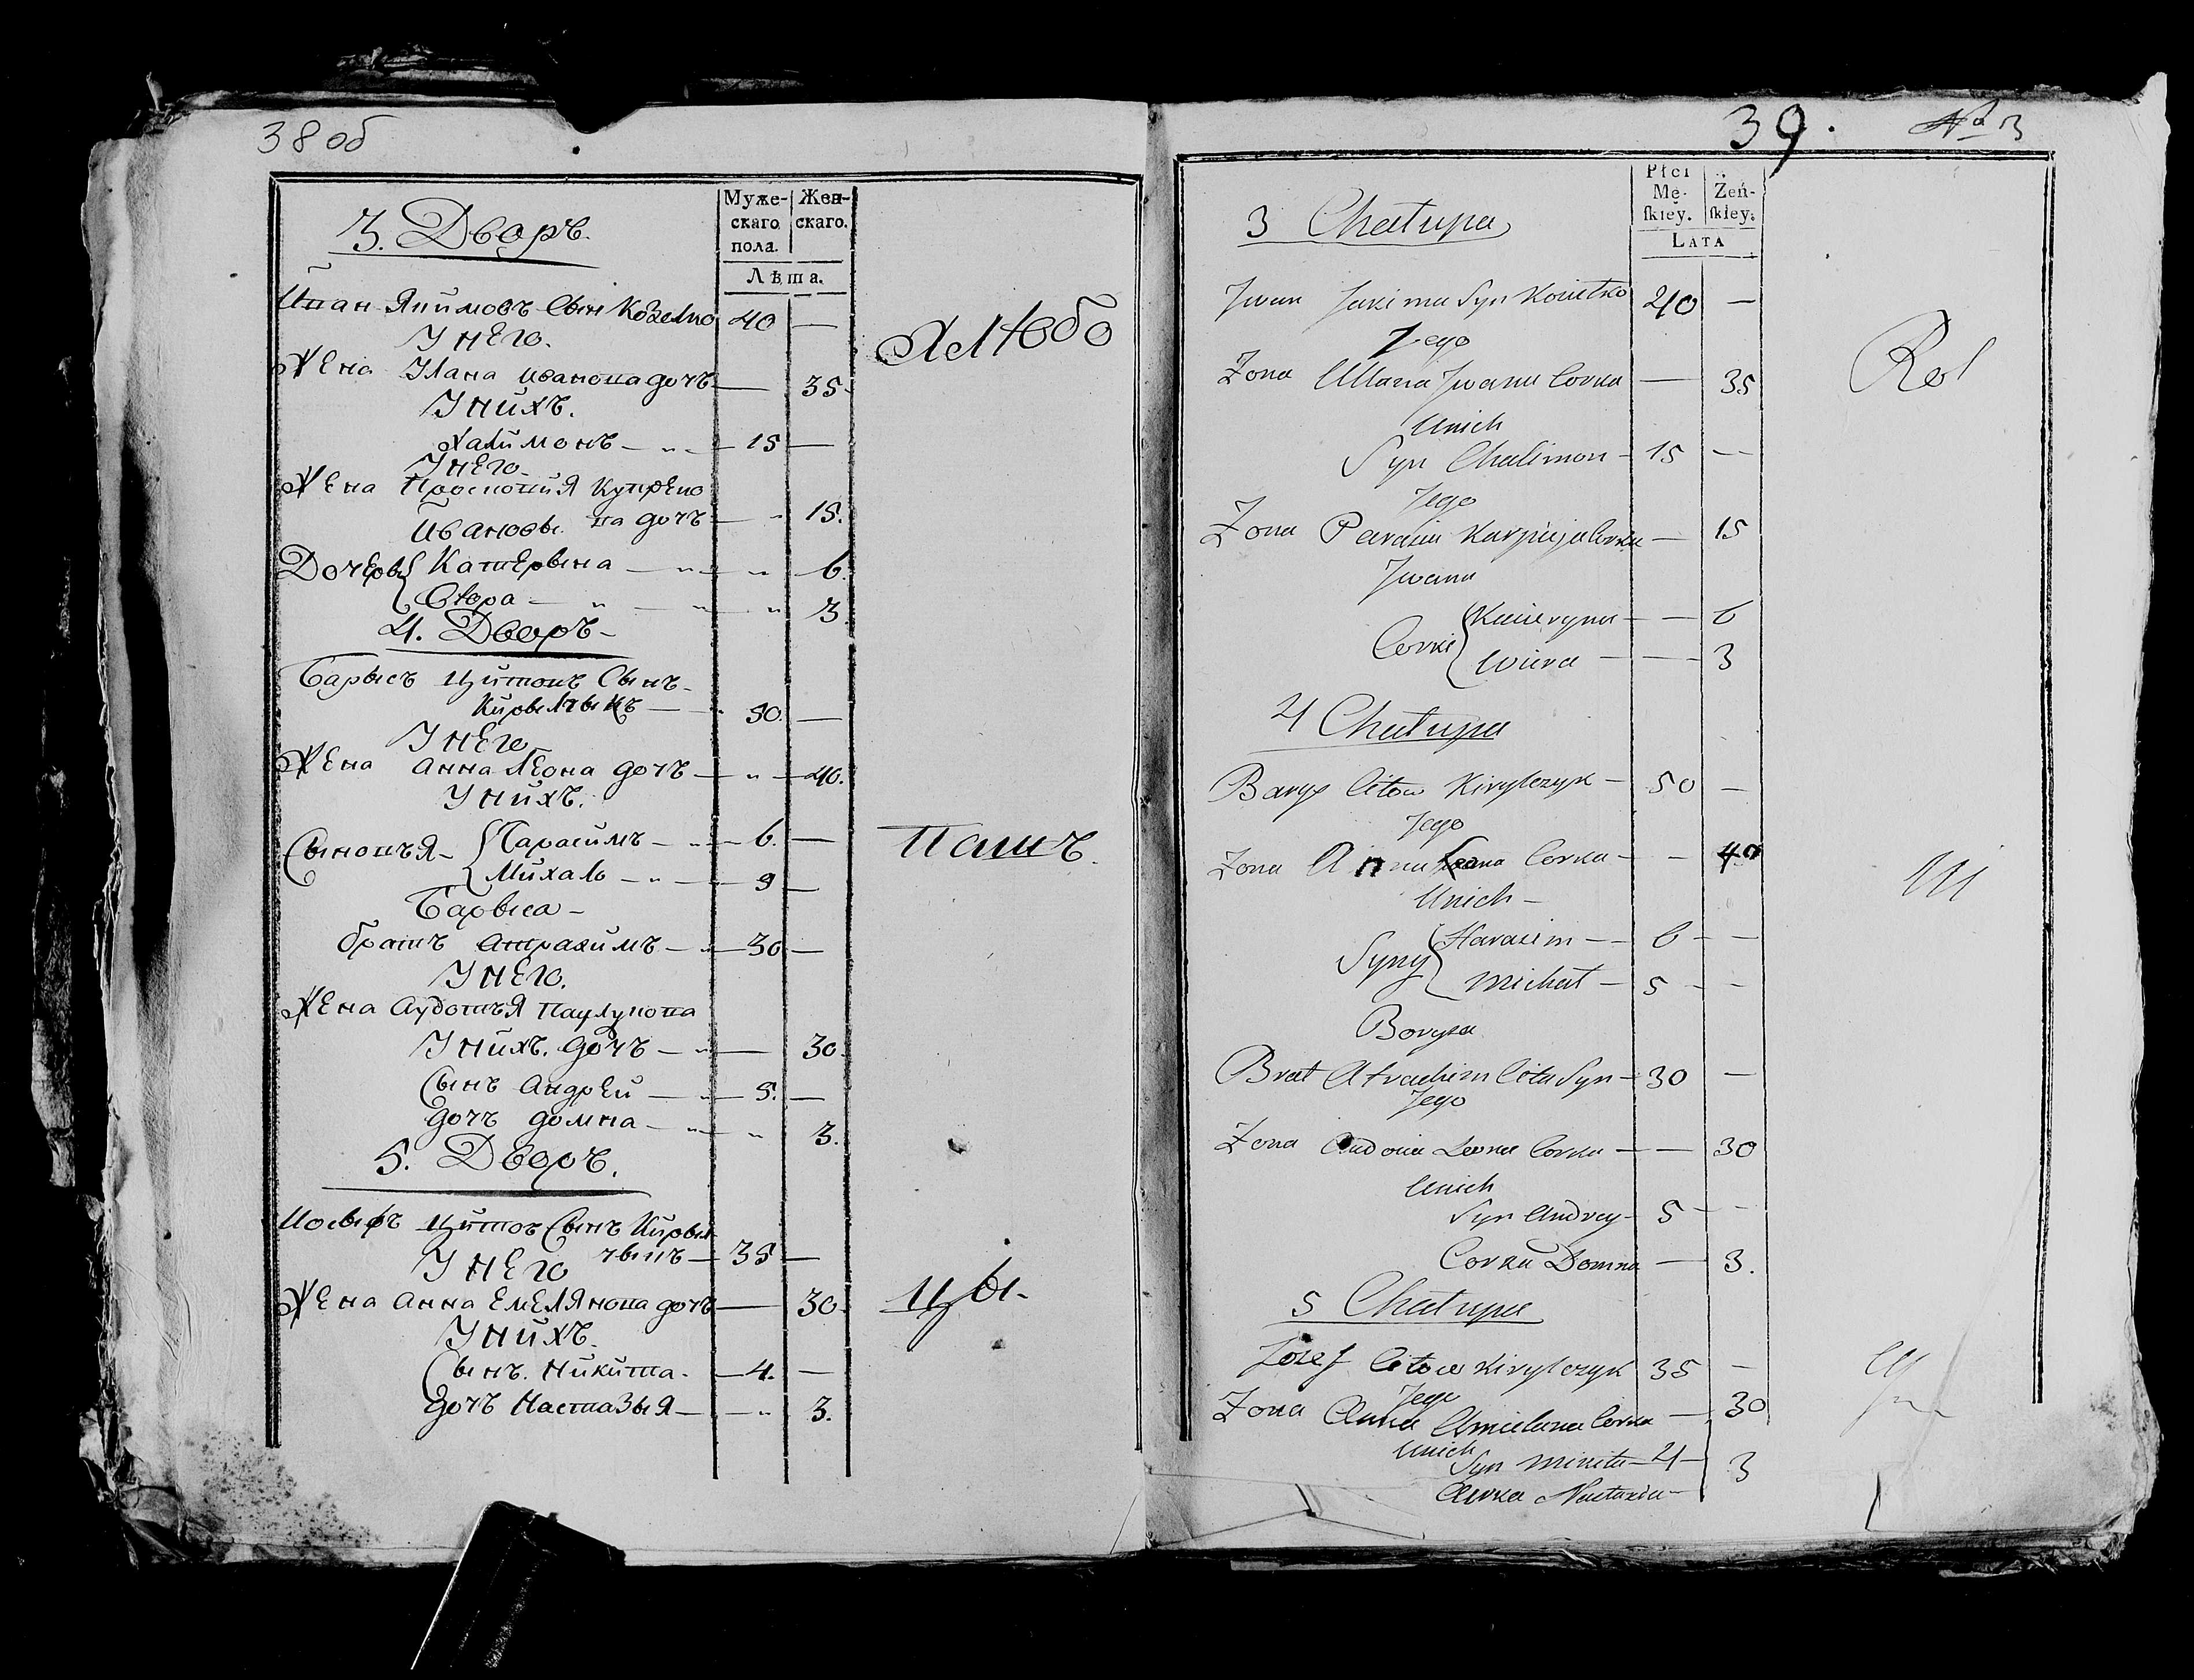 38 об
3. Дворъ.
Муже-
скаго
пола.
Жен-
скаго.
Лѣта.
Иван Якимовъ Сын Козелко 40 —
У него.
Жена Улана Иванова дочъ — 35.
У нихъ.
Халимонъ — 15 —
У него
Жена
Ивановы на дочъ — 15.
Дочеры Катерына — 6.
Вѣра — 3.
4. Дворъ
Барысъ Цитовъ Сынъ
Кирылчыкъ — 50. —
У него
Жена Анна Леона дочъ — 40.
У нихъ.
Сыновъя Гарасимъ — 6. —
Михалъ —
Барыса —
братъ Атрахимъ — 30 —
У него.
Жена Аудотъя
У нихъ. дочъ — 30.
Сынъ Андрей — 5. —
дочъ домна — 3.
5. Дворъ.
Иосыфъ Цитовъ Сынъ Кирыл
чыкъ — 35 —
У него
Жена Анна Емелянова дочъ — 30.
У нихъ.
Сынъ. Никита. — 4. —
дочъ Настазыя — 3.
Хлѣбо
Паш
цы.
39. № 3
3 Chałupa
Płci
Mę-
skiey.
Żeń-
skiey.
LATA
Jwan Jakima Syn 40 —
Jego
Żona Ullana Jwana Corka — 35
Unich
Syn Chalimon — 15 —
Jego
Żona Parasia Karpieja Corka — 15
Jwana
Corki Kacieryna — 6
Wiera — 3
4 Chałupa
Barys Citow Kirylczyk — 50 —
Jego
Żona Anna Leona Corka — 40
Unich —
Syny Harasim — 6 —
Michał — 5 —
Borysa
Brat Atrachim Cita Syn — 30 —
Jego
Żona Audocia Corka — 30
Unich
Syn Andrey — 5 —
Corka Domna — 3.
5 Chałupa
Jozef Citow Kirylczyk 35 —
Jego
Żona Anna Amielana Corka — 30
Unich
Syn Mikita — 4 —
Corka Nastazia — 3
Rol
ni